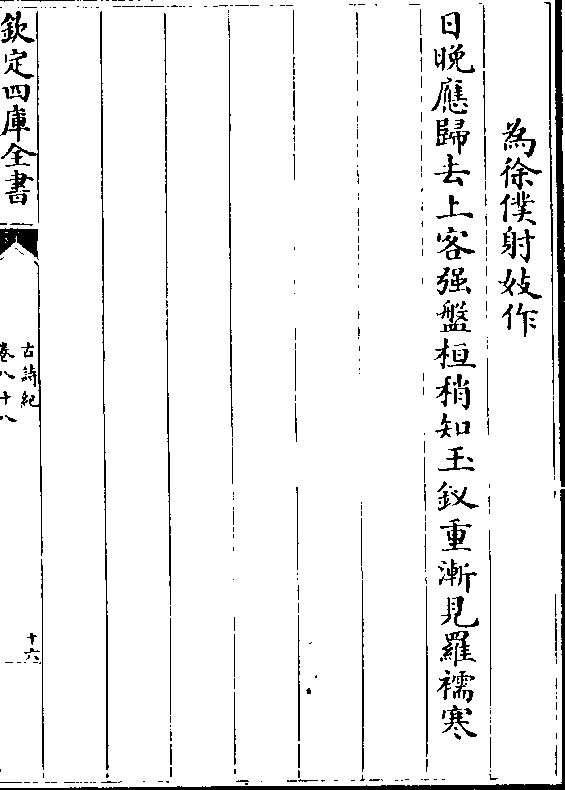 為徐僕射妓作
日晚應歸去上客强盤桓稍知玉釵重漸見羅襦寒
欽定四庫全書
古詩紀
卷八十八
十六